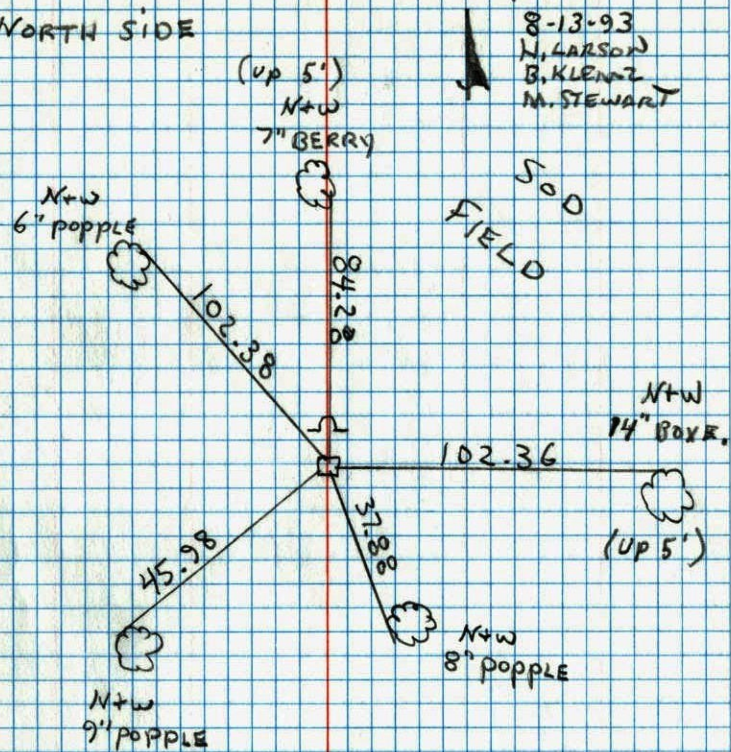 NORTH SIDE
8-13-93
N. LARSON
B. KLEMZ
M. STEWART
(up 5')
N+W
7" BERRY
SOD
FIELD
N+W
6" popple
84.28
102.38
N+W
14" BOXE.
102.36
(up 5')
37.88
45.98
N+W
8" popple
N+W
9" popple